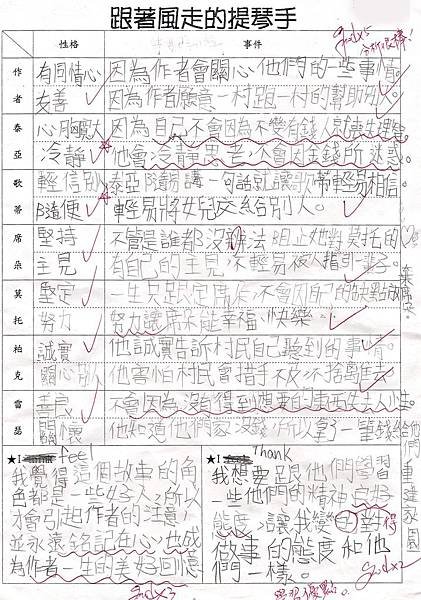 跟著風走的提琴手
性格
事件
good x5
分析很棒!
作者
有同情心
因為作者會關心他們的一些事情。
友善
因為作者願意一村跑一村的幫助別人。
泰亞
心胸寬大
因為自己不會因為不變有錢人就
冷靜
他會冷靜思考人會因金錢所迷惑。
歌蒂
輕信別人
泰亞隨錫講一句話就讓歌蒂輕易相信。
隨便
輕易將女兒交給別人。
席朵
堅持
不管是誰都沒辦法阻止她對莫托的心。
主見
有自己的主見,不輕易被人指引一輩子。
莫托
堅定
一生只跟定席朵,不會因自己的缺點放棄席朵。
努力
努力讓席朵能幸福、快樂。
柏克
誠實
他誠實告訴村民自己聽到的事情。
關心別人
他害怕村民會措手不及
雷瑟
善良
不會因為沒有得到想要的東西失去人性。
關懷
他知道他們
拿了一筆錢給他們重建家園
★I feel
我覺得這個故事的角
色都是一些好人,所以
才會引起作者的注意,
並永遠銘記在心,也成
為作者一生的美好回憶
good x3
★I Thank
我想要跟他們學習
一些他們的精神良好
態度,讓我變
得
做事的態度和他
們一樣。
good x2
學習優點。